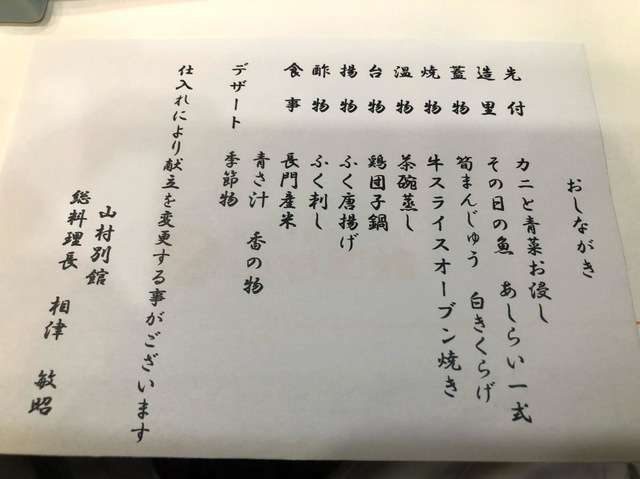 おしながき
先付 カニと青菜お浸し
造里 その日の魚 あしらい一式
蓋物 筍まんじゅう 白きくらげ
焼物 牛スライスオーブン焼き
温物 茶碗蒸し
台物 鶏団子鍋
揚物 ふく唐揚げ
酢物 ふく刺し
食事 長門産米
青さ汁 香の物
デザート 季節物
仕入れにより献立を変更する事がございます
山村別館
総料理長 相津 敏昭